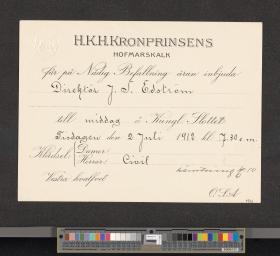 H.K.H. KRONPRINSENS
HOFMARSKALK
får på Nådig Befallning äran inbjuda
Direktör J. S. Edström
till middag å Kungl. Slottet
Tisdagen den 2 Juli 1912 kl. 7.30 e.m.
Klädsel: Damer
Herrar Civil
Hämtning kl. 10
Vestra hvalfvet
O.S.A.